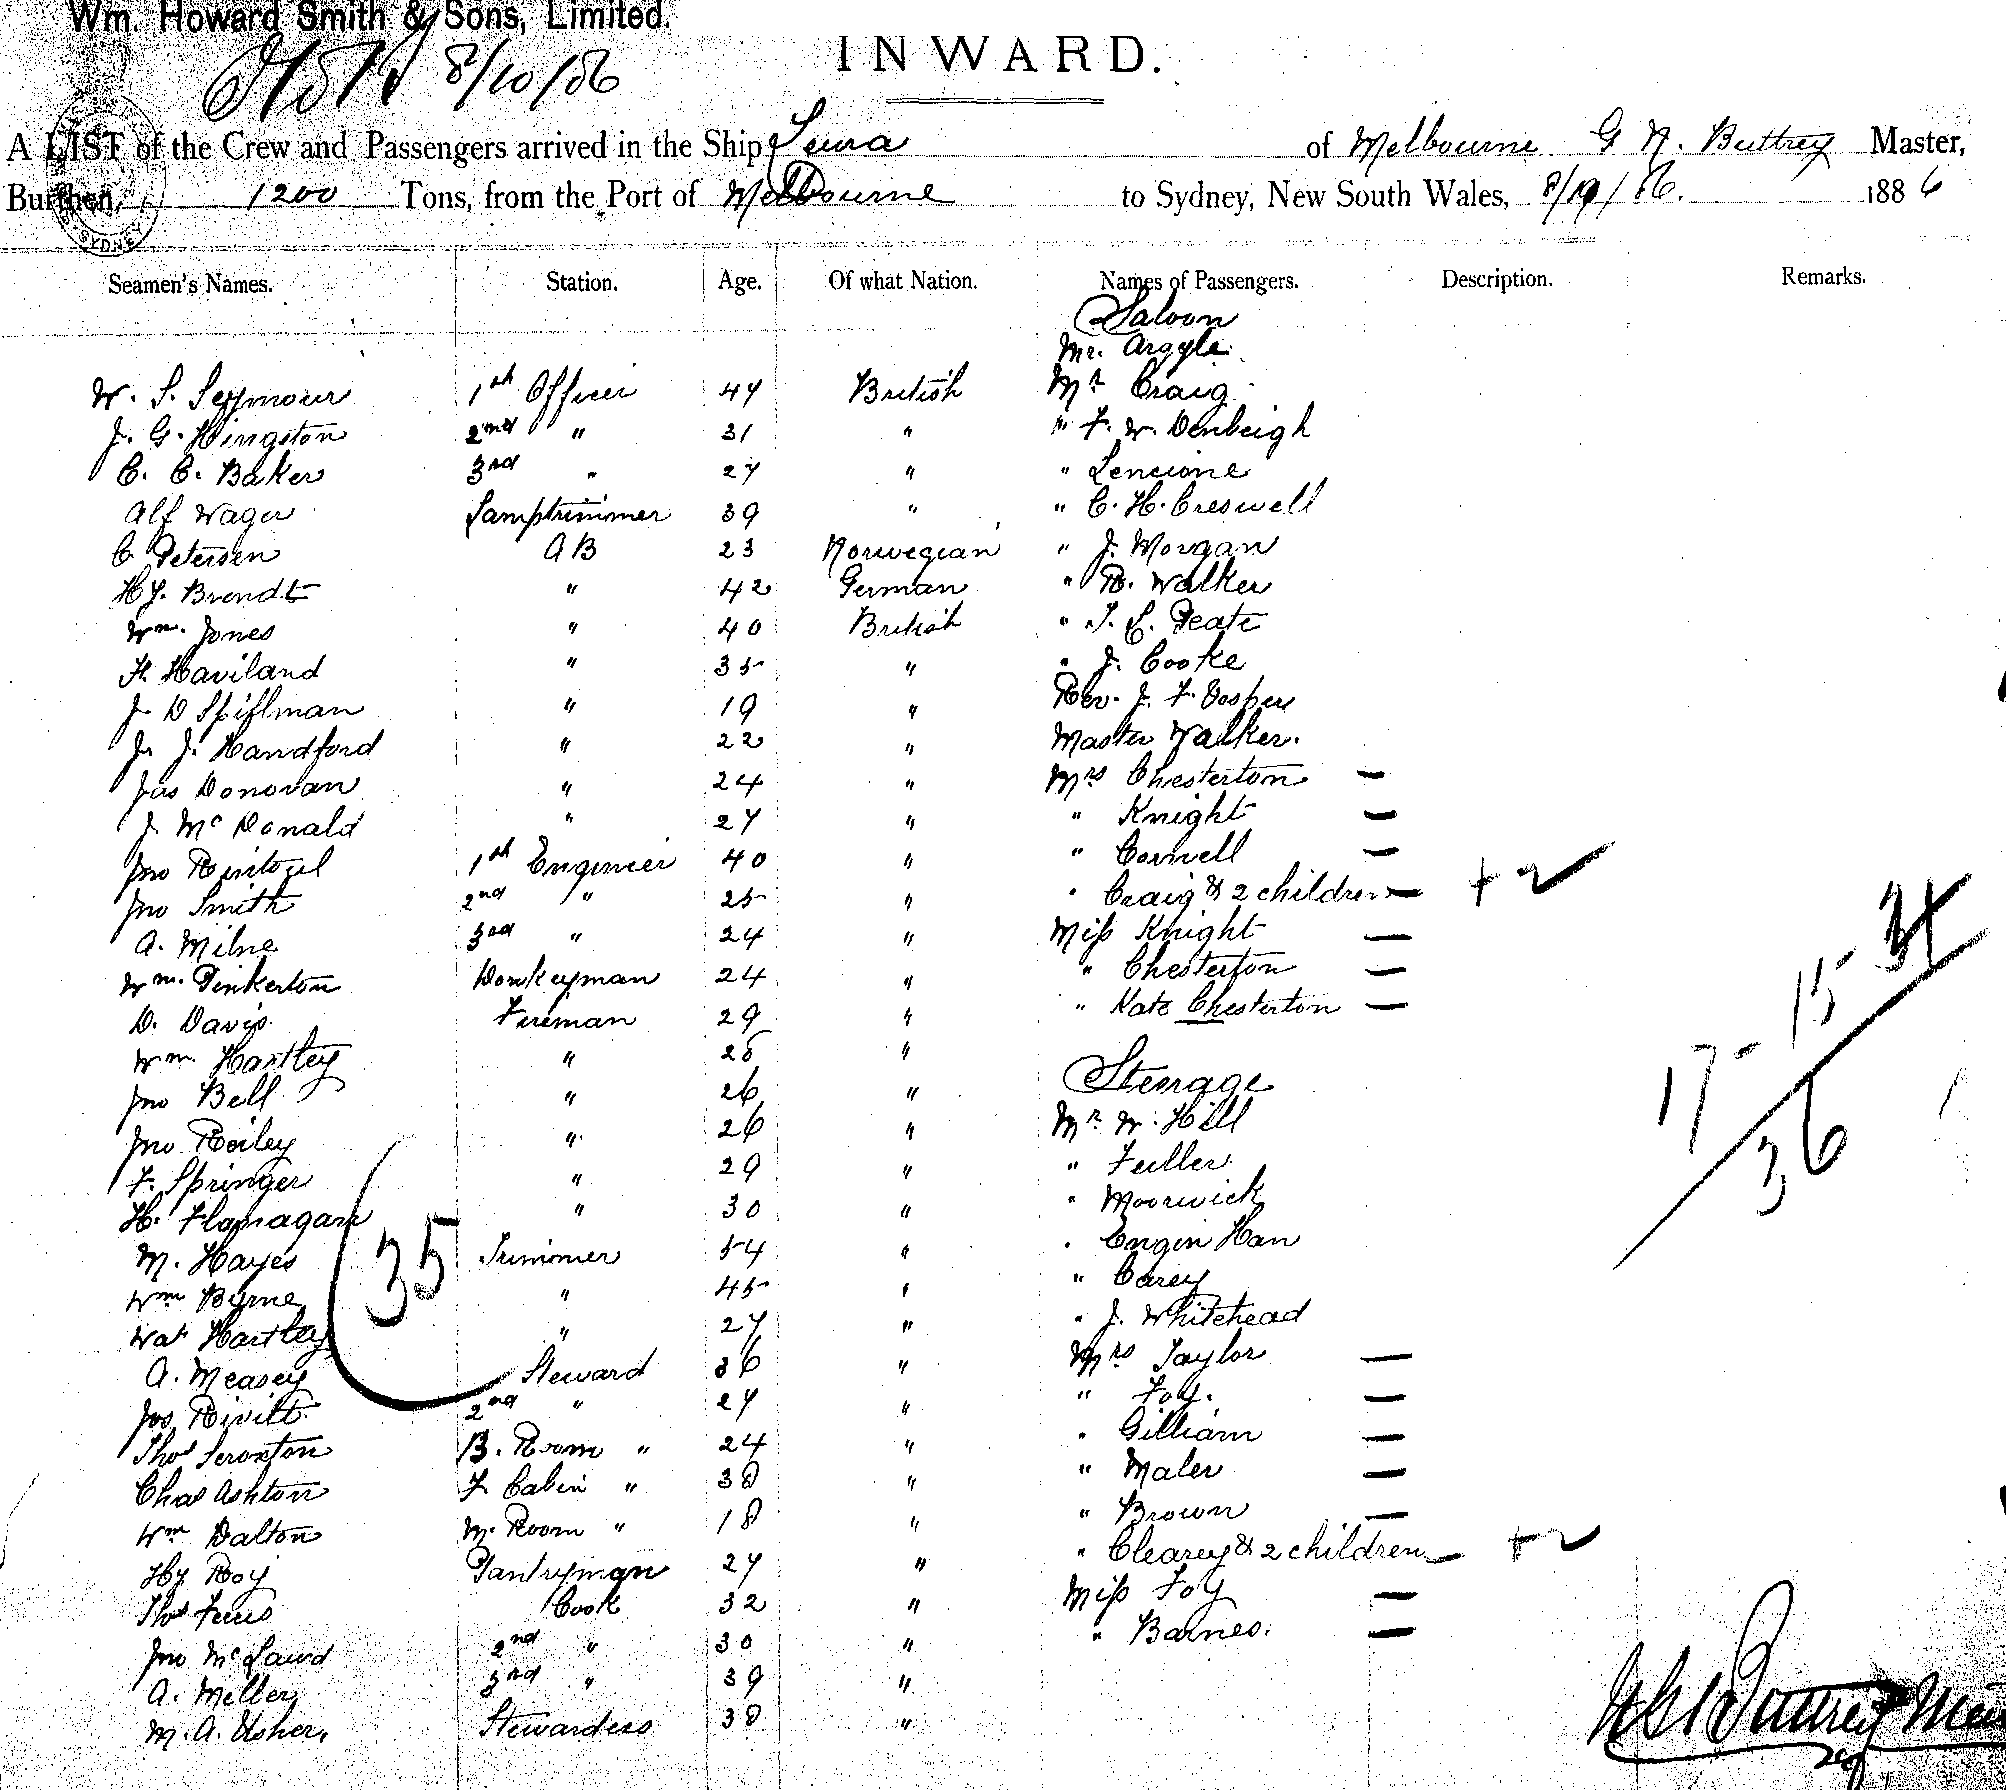 Wm. Howard Smith & Sons, Limited.
8/10/86
INWARD.
A LIST of the Crew and Passengers arrived in the Ship Leura of Melbourne G N. Buttrey Master,
Burthen, 1200 Tons, from the Port of Melbourne to Sydney, New South Wales, 8/10/86. 1886
Seamen's Names. Station. Age. Of what Nation. Names of Passengers. Description. Remarks.
Saloon
Mr. Argyle
W. S. Seymour 1st Officer 47 British Mr Craig
J. G. Hingston 2nd " 31 " " F. W. Denbeigh
C. C. Baker 3rd " 27 " " Lencione
Alf Wager Lamptrimmer 39 " " C. H. Creswell
C. Petersen AB 23 Norwegian " J. Morgan
Hy. Brendt " 42 German " R. Walker
Wm. Jones " 40 British " Peate
H. Haviland " 35 " " J. Cooke
J D Spillman " 19 " Rev. J. F. Vosper
J. J. Handford " 22 " Master Walker.
Jas Donovan " 24 " Mrs Chesterton —
J. McDonald " 27 " " Knight —
Jno 1st Engineer 40 " " Cornell —
Jno Smith 2nd " 25 " " Craig & 2 children — + 2
A. Milne 3rd " 24 " Miss Knight —
Wm. Pinkerton Donkeyman 24 " " Chesterton —
D. Davis Fireman 29 " " Kate Chesterton —
17 - 15 - 34
36
Wm. Hartley " 28 "
Steerage
Jno Bell " 26 "
Jno Reiley " 26 " Mr W. Hill
F. Springer " 29 " " Fuller
H. Flanagan " 30 " " Moorwick
35
M. Hayes Trimmer 54 " " Engin Han
Wm Byrne " 45 " " Carey
Wat Hartley " 27 " " J. Whitehead
A. Measey Steward 36 " Mrs Taylor —
Jos Rivitt 2nd " 27 " " Foy. —
Thos Scroxton B. Room " 24 " " Gilliam —
Chas Ashton F Cabin " 38 " " Maler —
Wm Dalton M. Room " 18 " " Brown —
Hy Roy Pantryman 27 " " Clearey & 2 children — + 2
Thos Cook 32 " Miss Foy —
Jno McLaird 2nd " 30 " " Barnes. —
A. Miller 3rd " 39 "
M. A. Usher. Stewardess 38 "